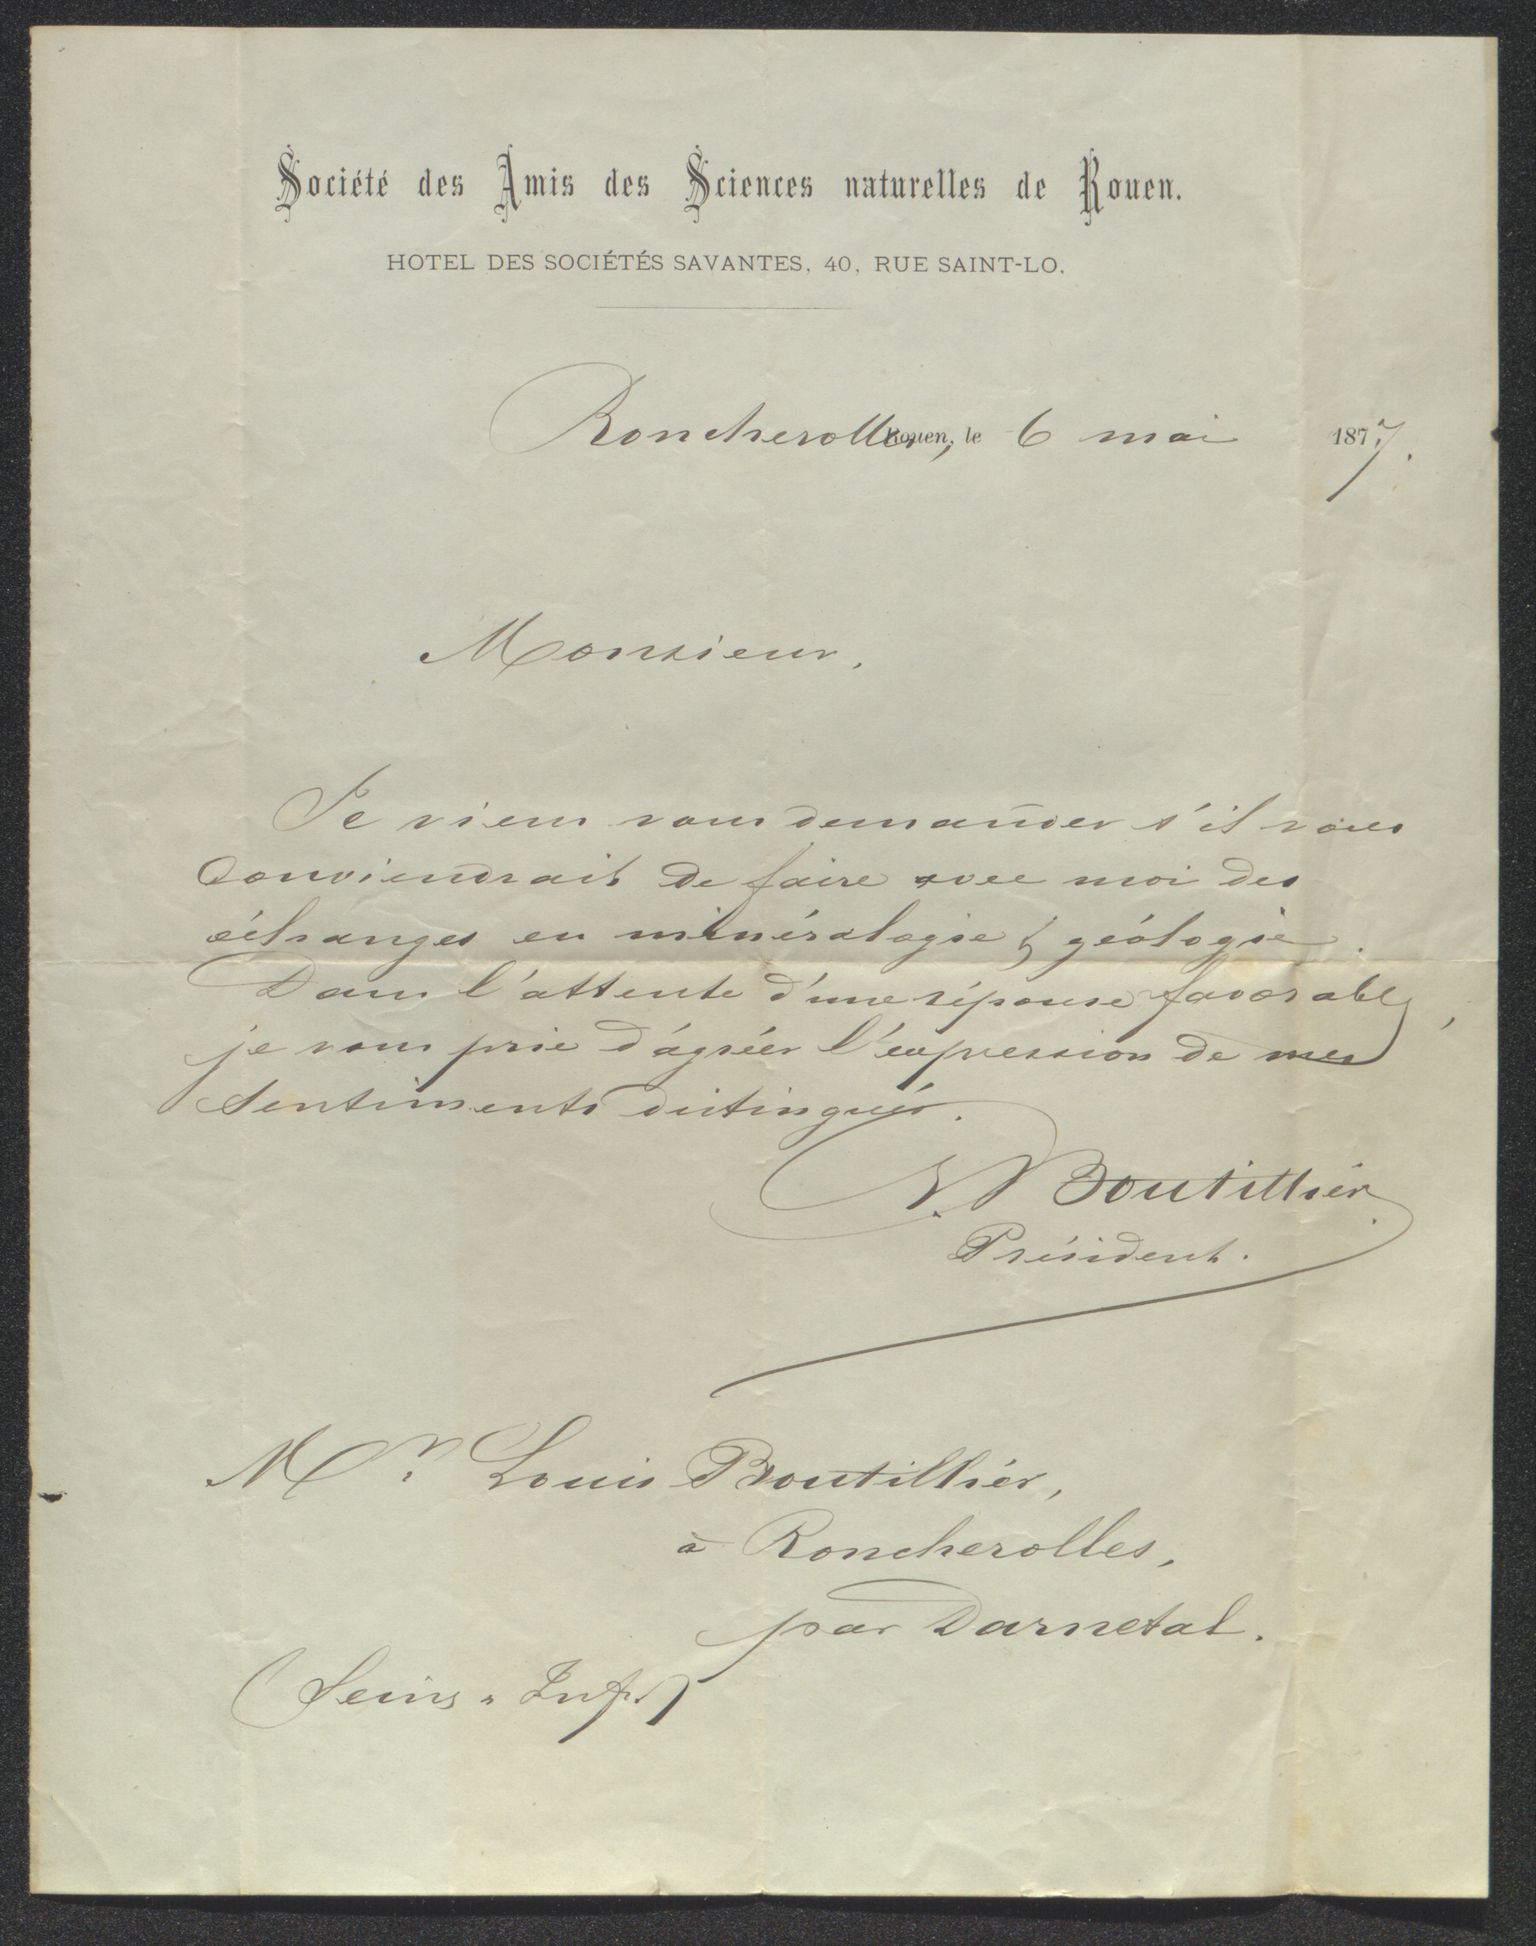 Société des Amis des Sciences naturelles de Rouen.
HOTEL DES SOCIÉTÉS SAVANTES, 40, RUE SAINT-LO.
Roncherolles, Rouen, le 6 mai 1877.
Monsieur,
Je viens vous demander s'il vous
conviendrait de faire avec moi des
échanges en minéralogie & géologie.
Dans l'attente d'une réponse favorable,
je vous prie d'agréer l'expression de mes
sentiments distingués.
L. Boutillier
Président.
Mr Louis Boutillier,
à Roncherolles,
par Darnetal.
(Seine-Infre)